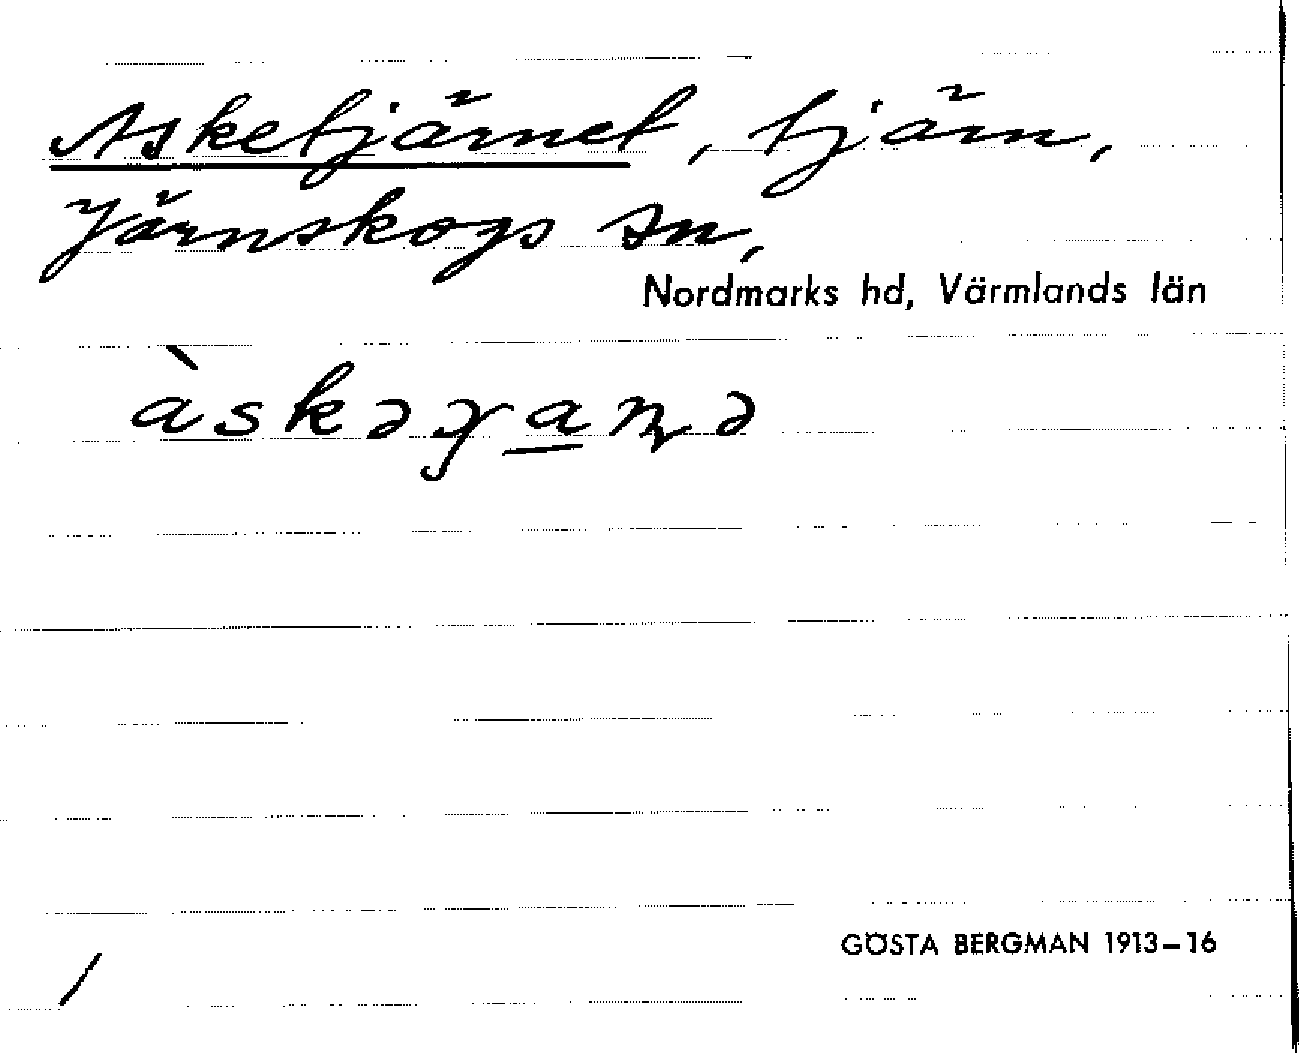 Asketjärnet, tjärn,
Järnskogs sn,
Nordmarks hd, Värmlands län
àskəɣa̲ɳə
GÖSTA BERGMAN 1913–16
/